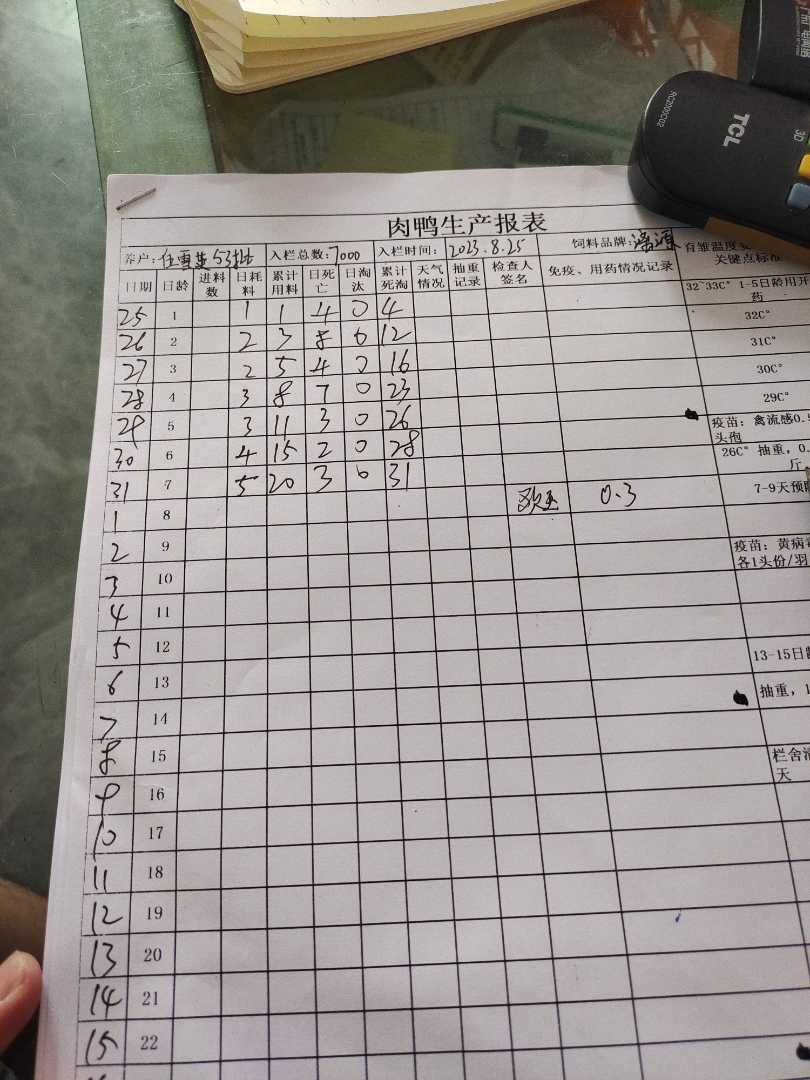 RC2000C02
TCL
3D
肉鸭生产报表
养户: 任雪 53批 入栏总数: 7000 入栏时间: 2023.8.25 饲料品牌: 源 育雏温度
关键点标
日期 日龄 进料数 日耗料 累计用料 日死亡 日淘汰 累计死淘 天气情况 抽重记录 检查人签名 免疫、用药情况记录
32~33C° 1-5日龄用开
药
25 1 1 1 4 0 4 32C°
26 2 2 3 8 0 12 31C°
27 3 2 5 4 0 16 30C°
28 4 3 8 7 0 23 29C°
29 5 3 11 3 0 26 疫苗: 禽流感0.5
头孢
30 6 4 15 2 0 28 26C° 抽重, 0.
斤
31 7 5 20 3 0 31 7-9天预
1 8 0.3
2 9 疫苗: 黄病
各1头份/羽
3 10
4 11
5 12 13-15日
6 13 抽重, 1
7 14
8 15 栏舍
天
9 16
10 17
11 18
12 19
13 20
14 21
15 22